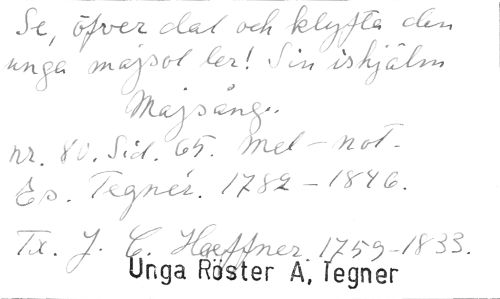 Se, öfver dal och klyfta den
unga majsol ler! Sin ishjälm
Majsång.
nr. 80. Sid. 65. Mel-not.
Es. Tegnér. 1782-1846.
Tx. J. C. Haeffner. 1759-1833.
Unga Röster A, Tegner